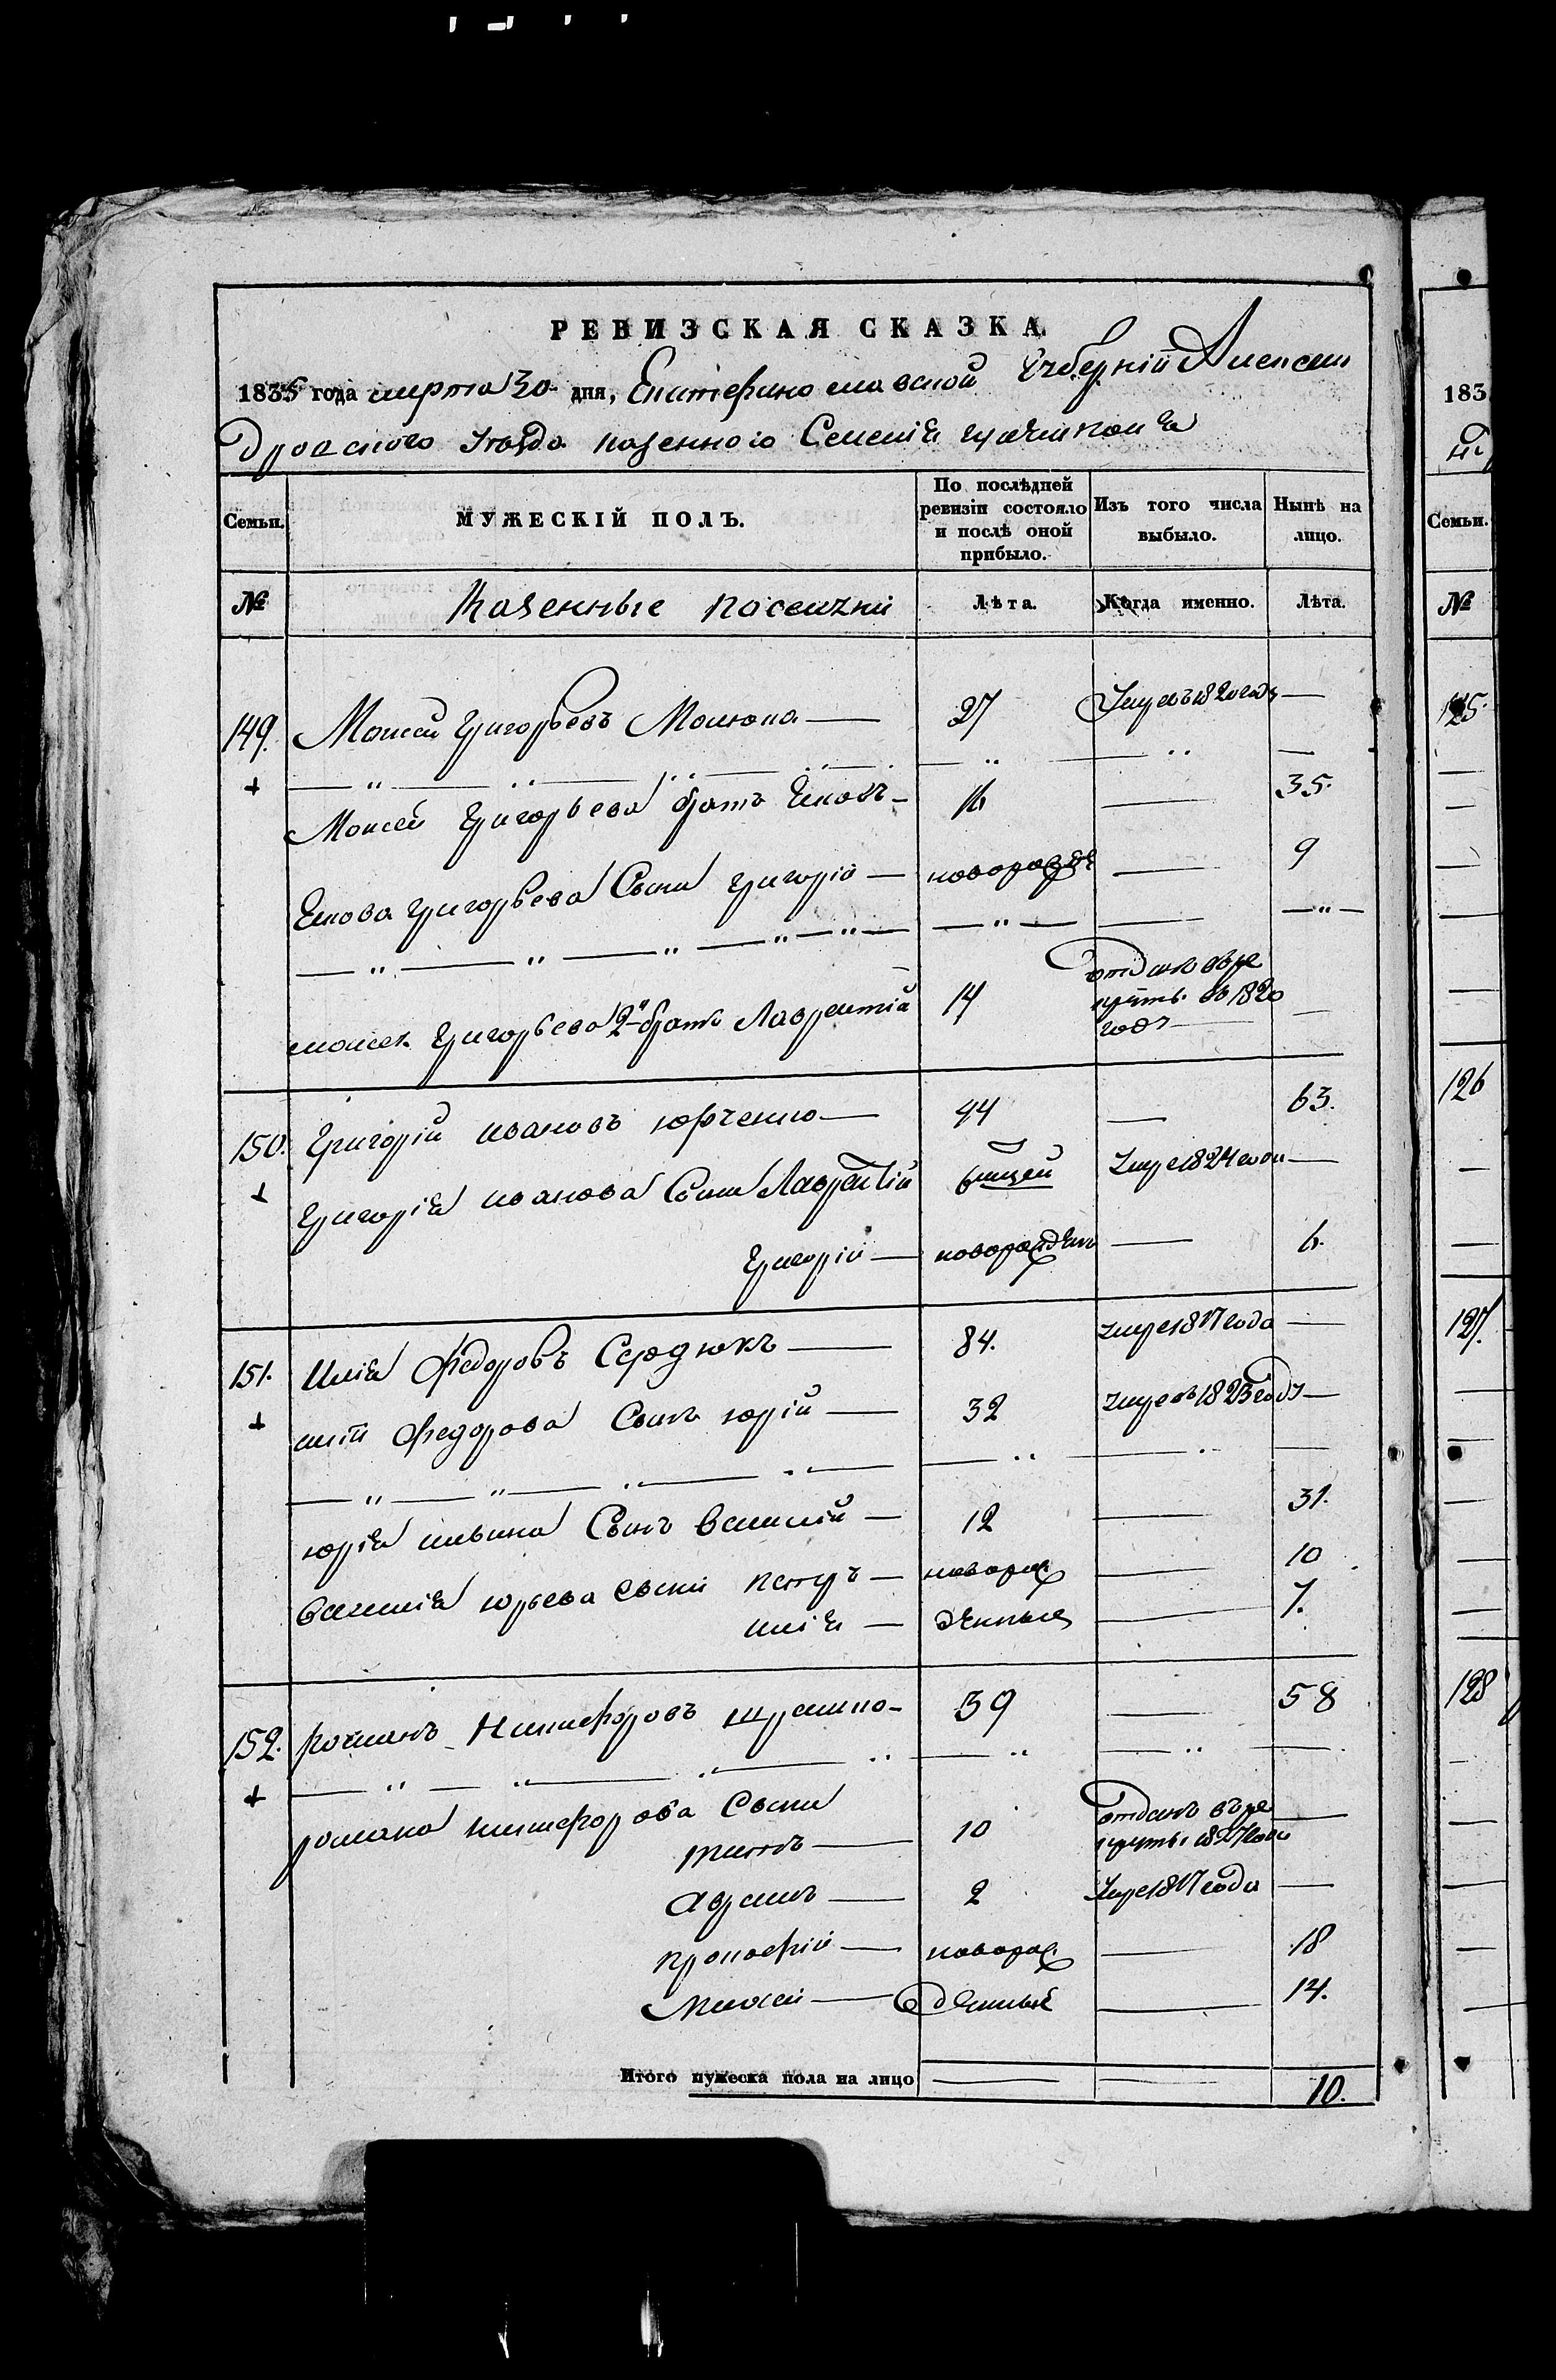 РЕВИЗСКАЯ СКАЗКА.
1835 года марта 30 дня, Екатеринославской Губерніи Алексан
дровского уезда казенного Селенія
Семьи. МУЖЕСКІЙ ПОЛЪ. По послѣдней ревизіи состояло и послѣ оной прибыло. Изъ того числа выбыло. Нынѣ на лицо.
№ Казенные поселяни Лѣта. Когда именно. Лѣта.
149. Моисей Григорьевъ 27 Умре въ 1820 году —
Моисея Григорьева братъ Яковъ — 16 — 35.
Якова Григорьева Сынъ Григорій — новорожде — 9
Моисея Григорьева 2й братъ Лаврентій 14 отданъ въ ре
круты въ 1820
годъ —
150. Григорій Ивановъ Юрченко — 44 — 63.
Григорія Иванова Сынъ Лаврентій 6 мцей Умре 1824 года —
Григорій — новорожденъ — 6.
151. Илія Федоровъ Сердюкъ — 84. умре 1817 года —
Иліи Федорова Сынъ Юрій — 32 умре въ 1823 году —
Юрія Ильина Сынъ Василій — 12 — 31.
Василія Юрьева Сыни Петръ — новорож — 10
Илія — денныя — 7.
152. Романъ Никифоровъ Шрамко — 39 — 58
Романа Никифорова Сыни
Титъ — 10 отданъ въ ре
круты 1827 года —
Аврамъ — 2 Умре 1817 года —
Прокофій — новорож — 18
Михей — денныя — 14.
Итого мужеска пола на лицо — — 10.
183
Семьи.
№
125.
126
127.
128